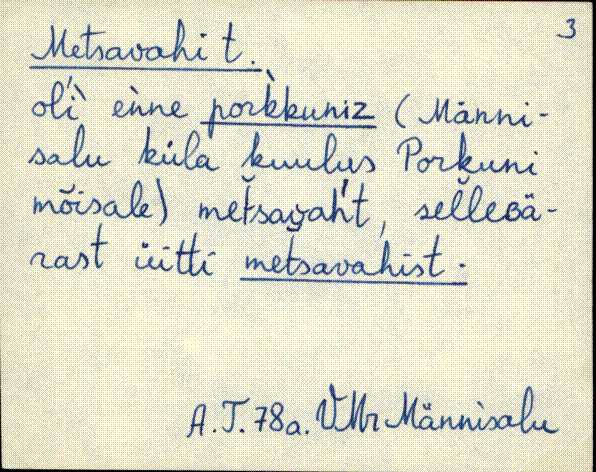 3
Metsavahi t.
oĺì èǹne pork̀kuniz (Männi-
salu küla kuulus Porkuni
mõisale) mètsava̭h́t, sel̆levä-
rast üitti mètsavahist.
A.T. 78a. VMr Männisalu